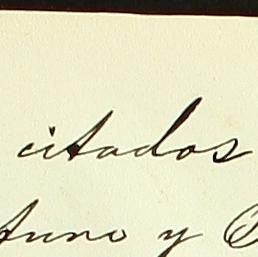 citados
tuno y